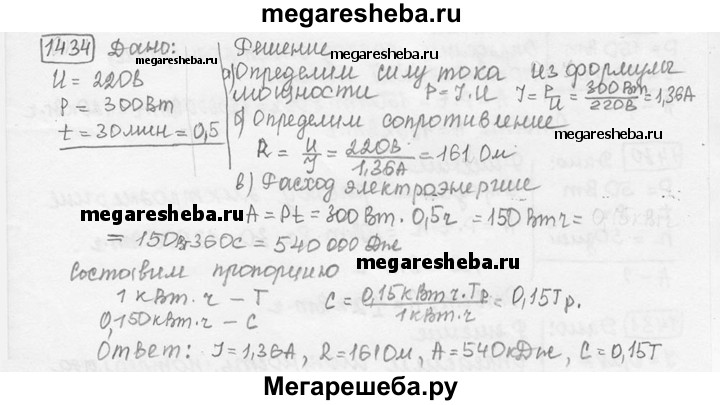 megaresheba.ru
1434 Дано: Решение
megaresheba.ru megaresheba.ru
U = 220В а) Определим силу тока из формулы
P = 300Вт мощности P = I·U I = P/U = 300Вт/220В = 1,36А
t = 30мин = 0,5 б) Определим сопротивление
megaresheba.ru
R = U/I = 220В/1,36А = 161Ом
в) Расход электроэнергие
megaresheba.ru
A = Pt = 300Вт·0,5ч = 150Втч =
= 150·360С = 540 000 Дж
Составим пропорцию megaresheba.ru
1 кВт·ч – Т C = 0,15кВтч·Тр/1кВт·ч = 0,15Тр.
0,150кВт·ч – С
Ответ: I = 1,36А, R = 161Ом, A = 540кДж, C = 0,15Т
Мегарешеба.ру